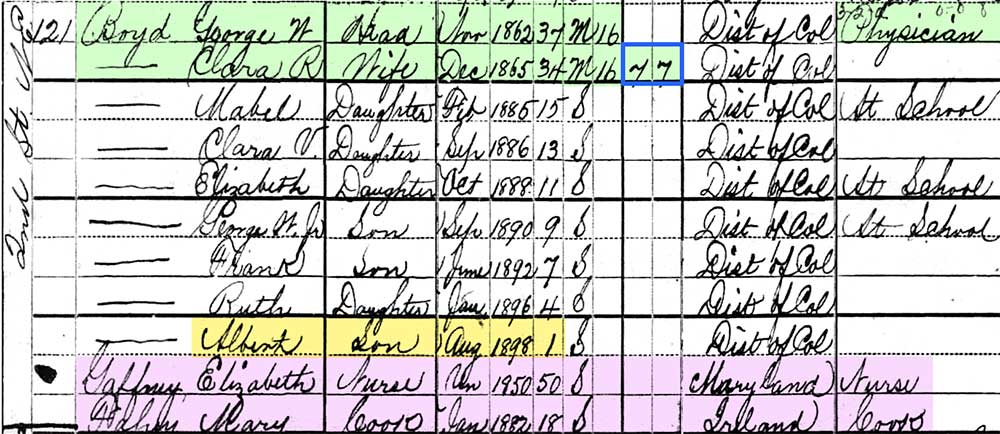 121 Boyd George W Head Nov 1862 37 M 16 Dist of Col Physician
Clara R Wife Dec 1865 34 M 16 7 7 Dist of Col
Mabel Daughter Feb 1885 15 S Dist of Col At School
Clara V. Daughter Sep 1886 13 S Dist of Col
Elizabeth Daughter Oct 1888 11 S Dist of Col At School
George W. Jr Son Sep 1890 9 S Dist of Col At School
Frank Son June 1892 7 S Dist of Col
Ruth Daughter Jan 1896 4 S Dist of Col
Albert Son Aug 1898 1 S Dist of Col
Gaffney Elizabeth Nurse Un 1950 50 S Maryland Nurse
Mary Cook Jan 1882 18 S Ireland Cook